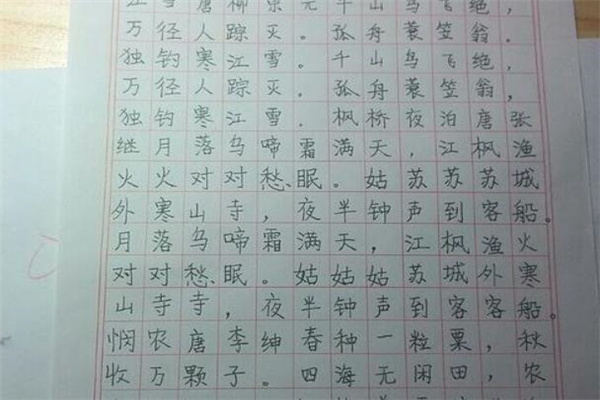 江雪唐柳宗元千山鸟飞绝,
万径人踪灭。孤舟蓑笠翁。
独钓寒江雪。千山鸟飞绝,
万径人踪灭,孤舟蓑笠翁,
独钓寒江雪.枫桥夜泊唐张
继月落乌啼霜满天,江枫渔
火火对对愁、眠。姑苏苏苏城
外寒山寺,夜半钟声到客船。
月落乌啼霜满天,江枫渔火
对对愁、眠。姑姑姑苏城外寒
山寺寺,夜半钟声到客客船。
悯农唐李绅春种一粒粟,秋
收万颗子。四海无闲田,农